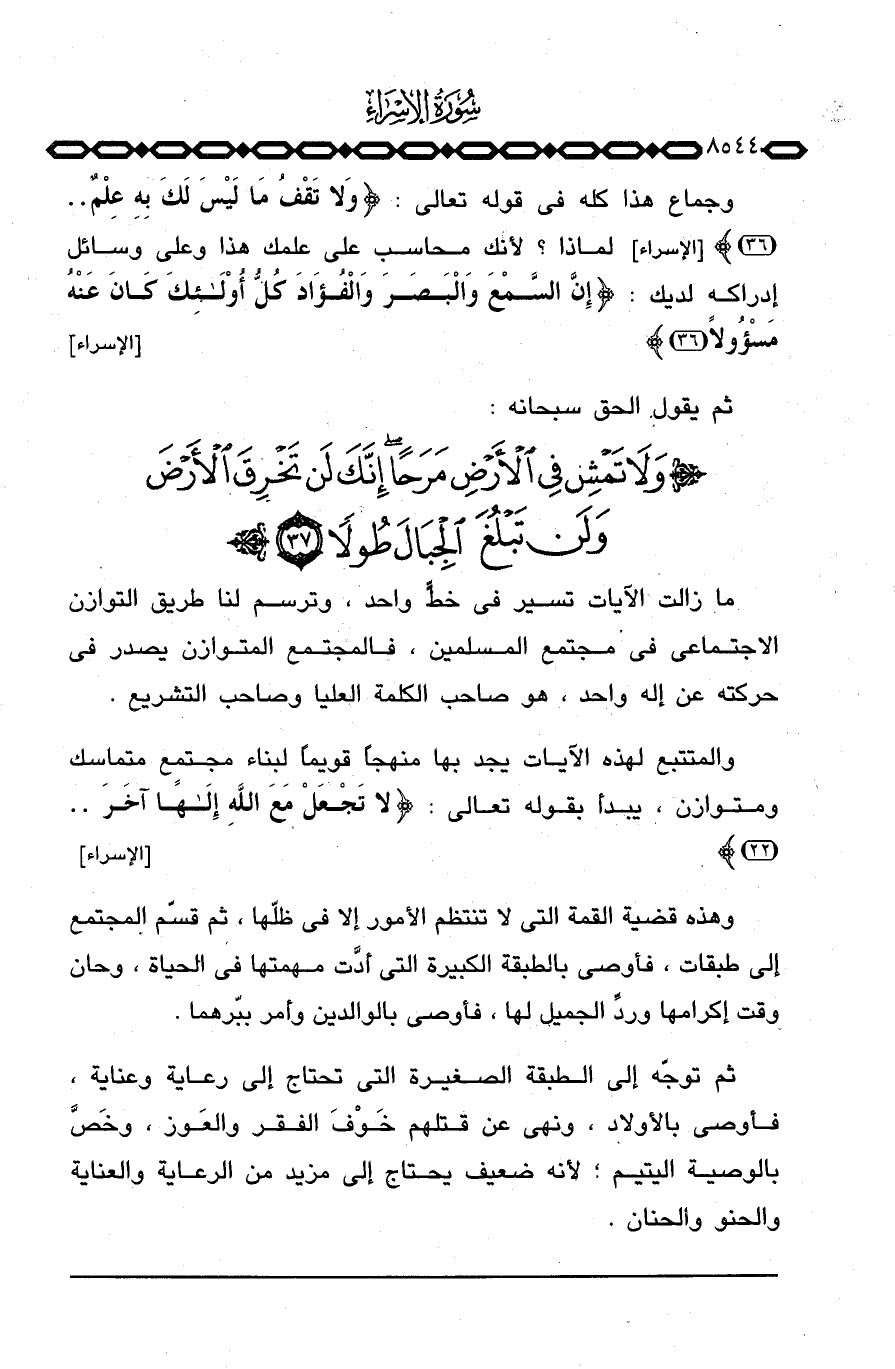 سُورَةُ الإِسْرَاءِ
٨٥٤٤
وجماع هذا كله فى قوله تعالى : ﴿وَلا تَقْفُ مَا لَيْسَ لَكَ بِهِ عِلْمٌ..
(٣٦)﴾ [الإسراء] لماذا ؟ لأنك محاسب على علمك هذا وعلى وسائل
إدراكه لديك : ﴿إِنَّ السَّمْعَ وَالْبَصَرَ وَالْفُؤَادَ كُلُّ أُوْلَـٰئِكَ كَانَ عَنْهُ
مَسْؤُولاً (٣٦)﴾ [الإسراء]
ثم يقول الحق سبحانه :
﴿وَلَا تَمْشِ فِي ٱلْأَرْضِ مَرَحًا ۖ إِنَّكَ لَن تَخْرِقَ ٱلْأَرْضَ
وَلَن تَبْلُغَ ٱلْجِبَالَ طُولًا ٣٧﴾
ما زالت الآيات تسير فى خطٍّ واحد ، وترسم لنا طريق التوازن
الاجتماعى فى مجتمع المسلمين ، فالمجتمع المتوازن يصدر فى
حركته عن إله واحد ، هو صاحب الكلمة العليا وصاحب التشريع .
والمتتبع لهذه الآيات يجد بها منهجاً قويماً لبناء مجتمع متماسك
ومتوازن ، يبدأ بقوله تعالى : ﴿لا تَجْعَلْ مَعَ اللَّهِ إِلَـٰهًا آخَرَ ..
(٢٢)﴾ [الإسراء]
وهذه قضية القمة التى لا تنتظم الأمور إلا فى ظلّها ، ثم قسّم المجتمع
إلى طبقات ، فأوصى بالطبقة الكبيرة التى أدَّت مهمتها فى الحياة ، وحان
وقت إكرامها وردِّ الجميل لها ، فأوصى بالوالدين وأمر ببّرهما .
ثم توجّه إلى الطبقة الصغيرة التى تحتاج إلى رعاية وعناية ،
فأوصى بالأولاد ، ونهى عن قتلهم خَوْفَ الفقر والعَوز ، وخَصَّ
بالوصية اليتيم ؛ لأنه ضعيف يحتاج إلى مزيد من الرعاية والعناية
والحنو والحنان .